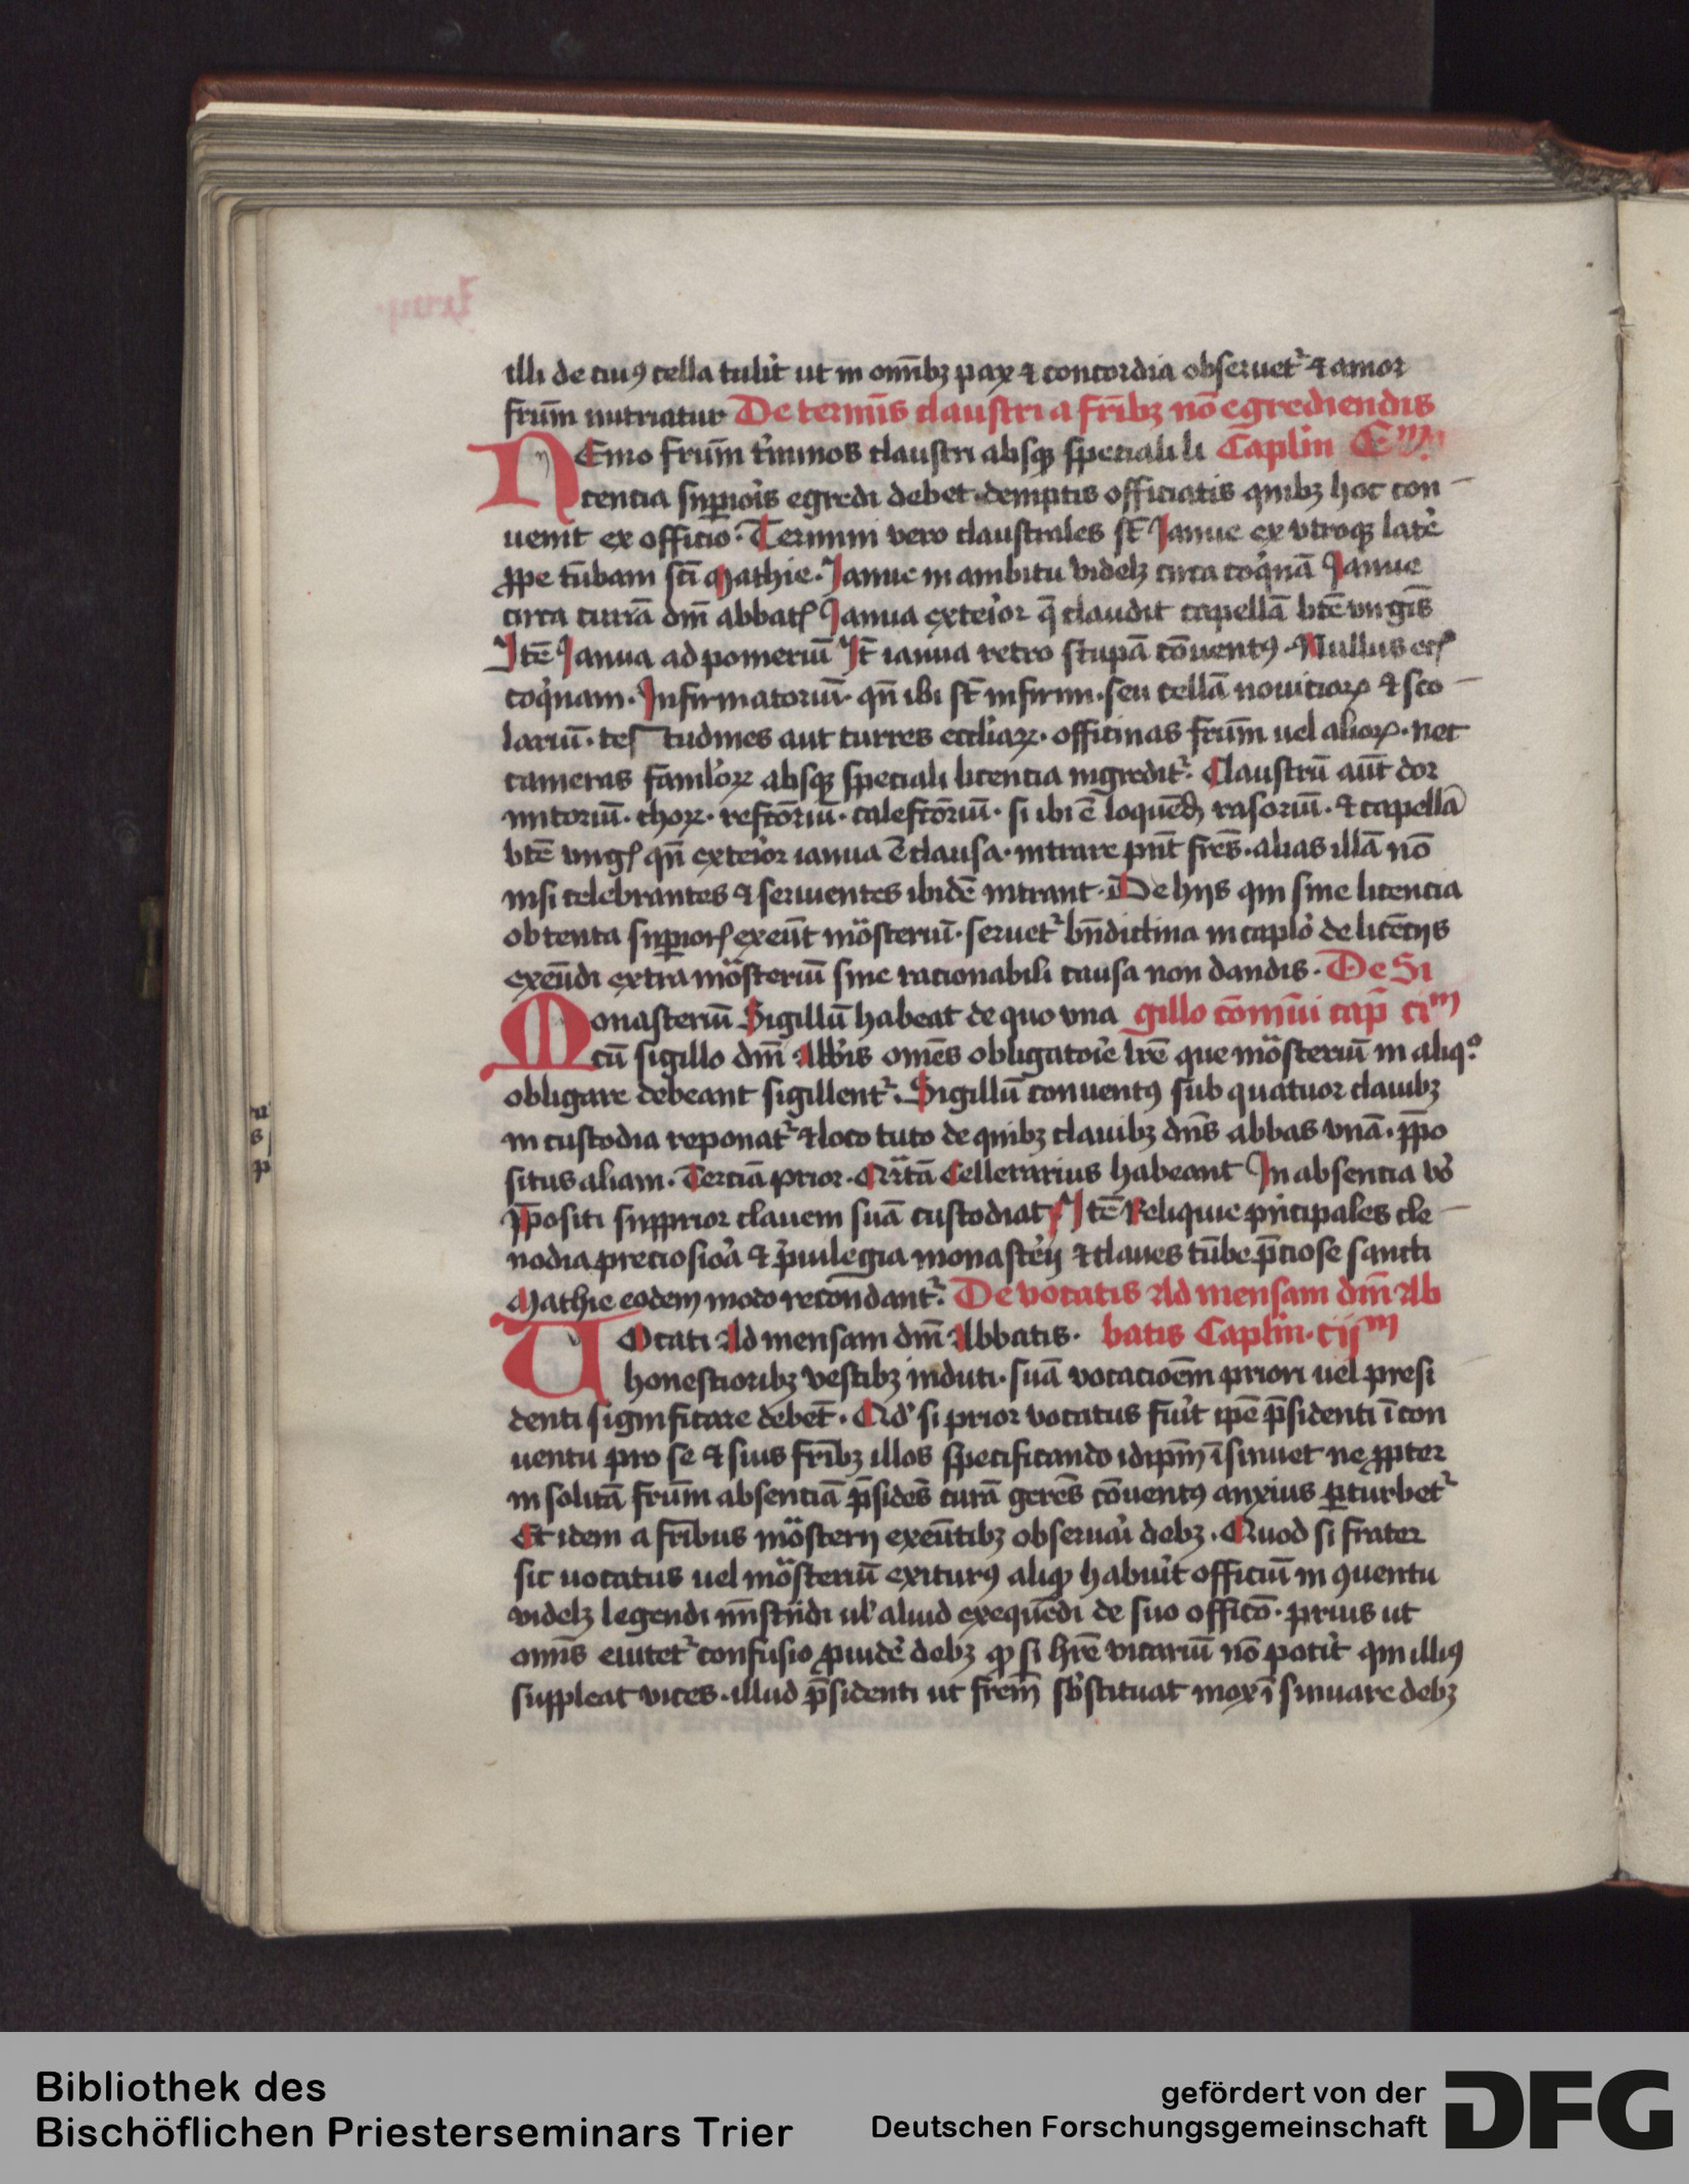 illi de cuiꝯ cella tulit ut in om̄ibꝫ pax ⁊ concordia obseruet᷑ ⁊ amor
frūm nutriatur De termīs claustri a frībꝫ nō egrediendis
NEmo frūm t̓minos claustri absqꝫ speciali li Caplm̄ Cm
cencia suꝑiōis egredi debet demptis officiatis quibꝫ hoc con
uenit ex officio. Termini vero claustrales st̄ Janue ex vtroqꝫ late̓
ꝓpe tūbam sc̄i Mathie. Janue in ambitu videlꝫ circa coq̓nā Janue
circa curiā dn̄i abbatꝭ Janua exte̓ior q̄ claudit capellā bt̄e v̓ngīs
Jtē Janua ad pomeriū Jt̄ ianua retro stupā cōuentꝯ. Nullus ecꝭ
coq̓nam. Infirmatoriū. qn̄ ibi st̄ infirmi. seu cellā nouicioꝝ ⁊ sco
lariū. tes tudines aut turres eccl̓iaꝝ. officinas frūm uel alioꝝ. nec
cameras famil̓oꝝ absqꝫ speciali licencia ingredit᷑. Claustrū aūt dor
mitoriū. choꝝ. refc̄oriū. calefc̄oriū. si ibi ē loquēdꝫ rasoriū. ⁊ capellā
bt̄e v̓ngꝭ qn̄ exte̓ior ianua ē clausa. intrare pn̄t frēs. alias illā nō
nisi celebrantes ⁊ seruientes ibidē intrant. De hijs qui sine licencia
obtenta suꝑiorꝭ exeūt mōsteriū. seruet᷑ bn̄dictina in caplo̓ de licēcijs
exeūdi extra mōsteriū sine racionabili causa non dandis. De Si
Monasteriū Sigillū habeat de quo vna gillo cōmūi cap̄ cim
cū sigillo dn̄i Abb̓is omēs obligatoīe lrē que mōsteriū in aliq.º
obligare debeant sigillent᷑. Sigillū conuentꝯ sub quatuor clauibꝫ
in custodia reponat᷑ ⁊ loco tuto de quibꝫ clauibꝫ dn̄s abbas vnā. p̄po
situs aliam. Terciā prior. Qr̄tā Cellerarius habeant In absencia v̓o
p̄positi supprior clauem suā custodiat Jtē Reliquie pn̓cipales cle
nodia preciosioa̓ ⁊ p̓uilegia monaste̓ij ⁊ claues tūbe p̄ciose sancti
Mathie eodem modo recondant᷑. De vocatis Ad mensam dn̄i Ab
VOcati Ad mensam dn̄i Abbatis. batis Caplm̄. cijm
honestioribꝫ vestibꝫ induti. suā vocacioēm priori uel presi
denti significare debet̄. Qd̓ si prior vocatus fuīt ip̄e p̄sidenti ī con
uentu pro se ⁊ suis frībꝫ illos specificando idip̄m īsinuet ne ꝓpter
in solitā frūm absenciā p̄sidēs curā gerēs cōuentꝯ anxius ꝑturbet᷑
Et idem a frībus mōsterij exeūtibꝫ obseruaı̓ debꝫ. Quod si frater
sic uocatus uel mōsteriū exiturꝯ aliqꝫ habuīt officiū in ꝯuentu
videlꝫ legendi mīstn̄di ul̓ aliud exequēdi de suo officō. prius ut
omīs euitet᷑ confusio ꝓuide̓ debꝫ qꝫ si hr̄e vicariū nō potīt qui illiꝯ
suppleat vices. illud p̄sidenti ut frēm sb̓stituat mox ī sinuare debꝫ
Bibliothek des
Bischöflichen Priesterseminars Trier
gefördert von der
Deutschen Forschungsgemeinschaft
DFG